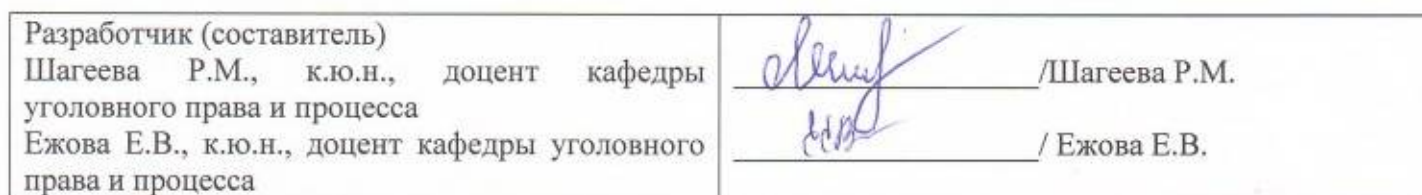 Разработчик (составитель)
Шагеева Р.М., к.ю.н., доцент кафедры
уголовного права и процесса
Ежова Е.В., к.ю.н., доцент кафедры уголовного
права и процесса
/Шагеева Р.М.
/ Ежова Е.В.